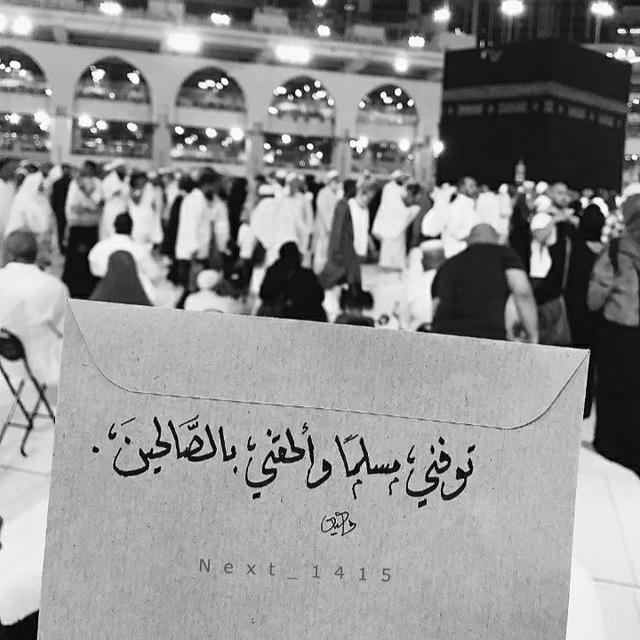 توفني مسلمًا وألحقني بالصَّالحينَ.
Next_1415